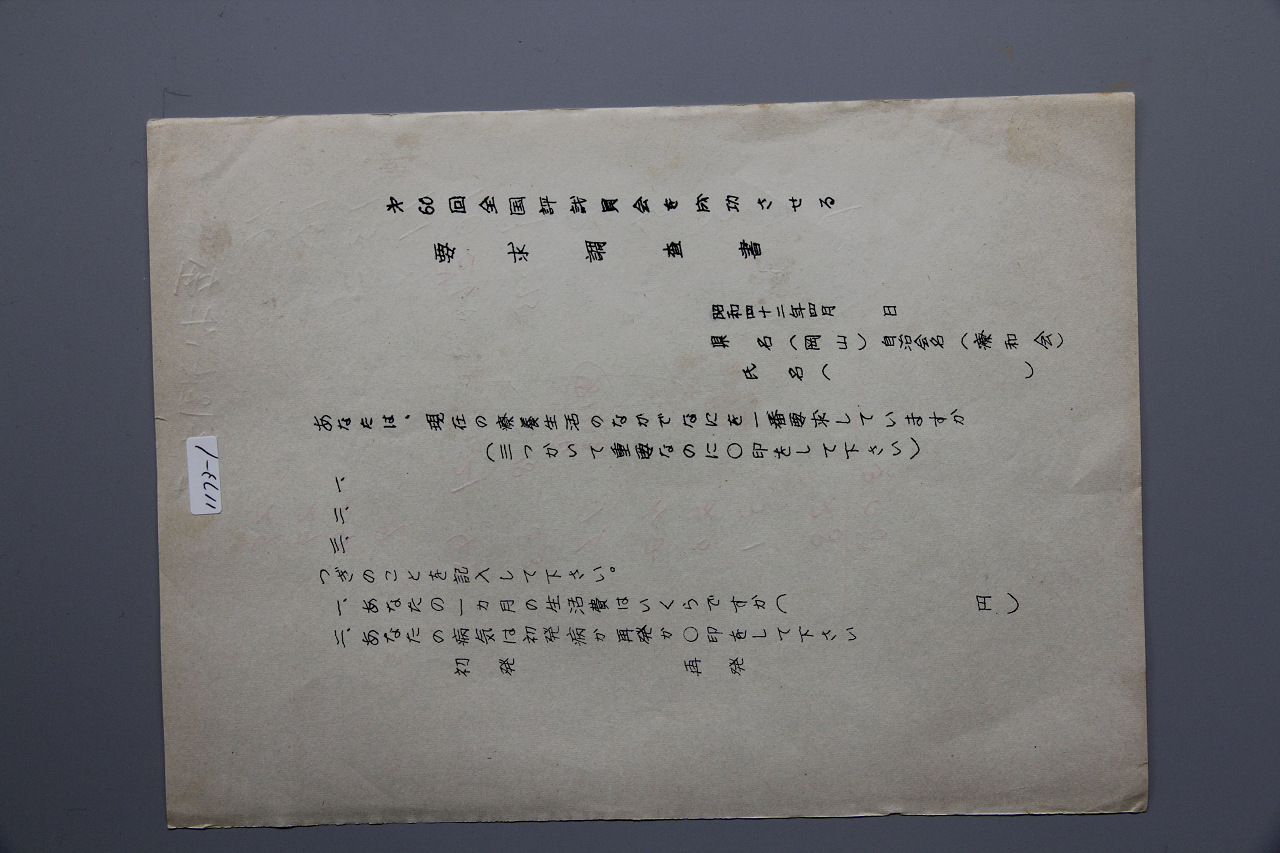 才60回全国評議員会を成功させる
要求調査書
昭和四十三年四月　　日
県　名（岡山）自治会名（療和会）
氏　名（　　　　　　　　）
あなたは、現在の療養生活のなかでなにを一番要求していますか
（三つかいて重要なのに〇印をして下さい）
一、
二、
三、
つぎのことを記入して下さい。
一、あなたの一カ月の生活費はいくらですか（　　　　　　円）
二、あなたの病気は初発病か再発か〇印をして下さい
初　発　　　　　　再　発
1173-1